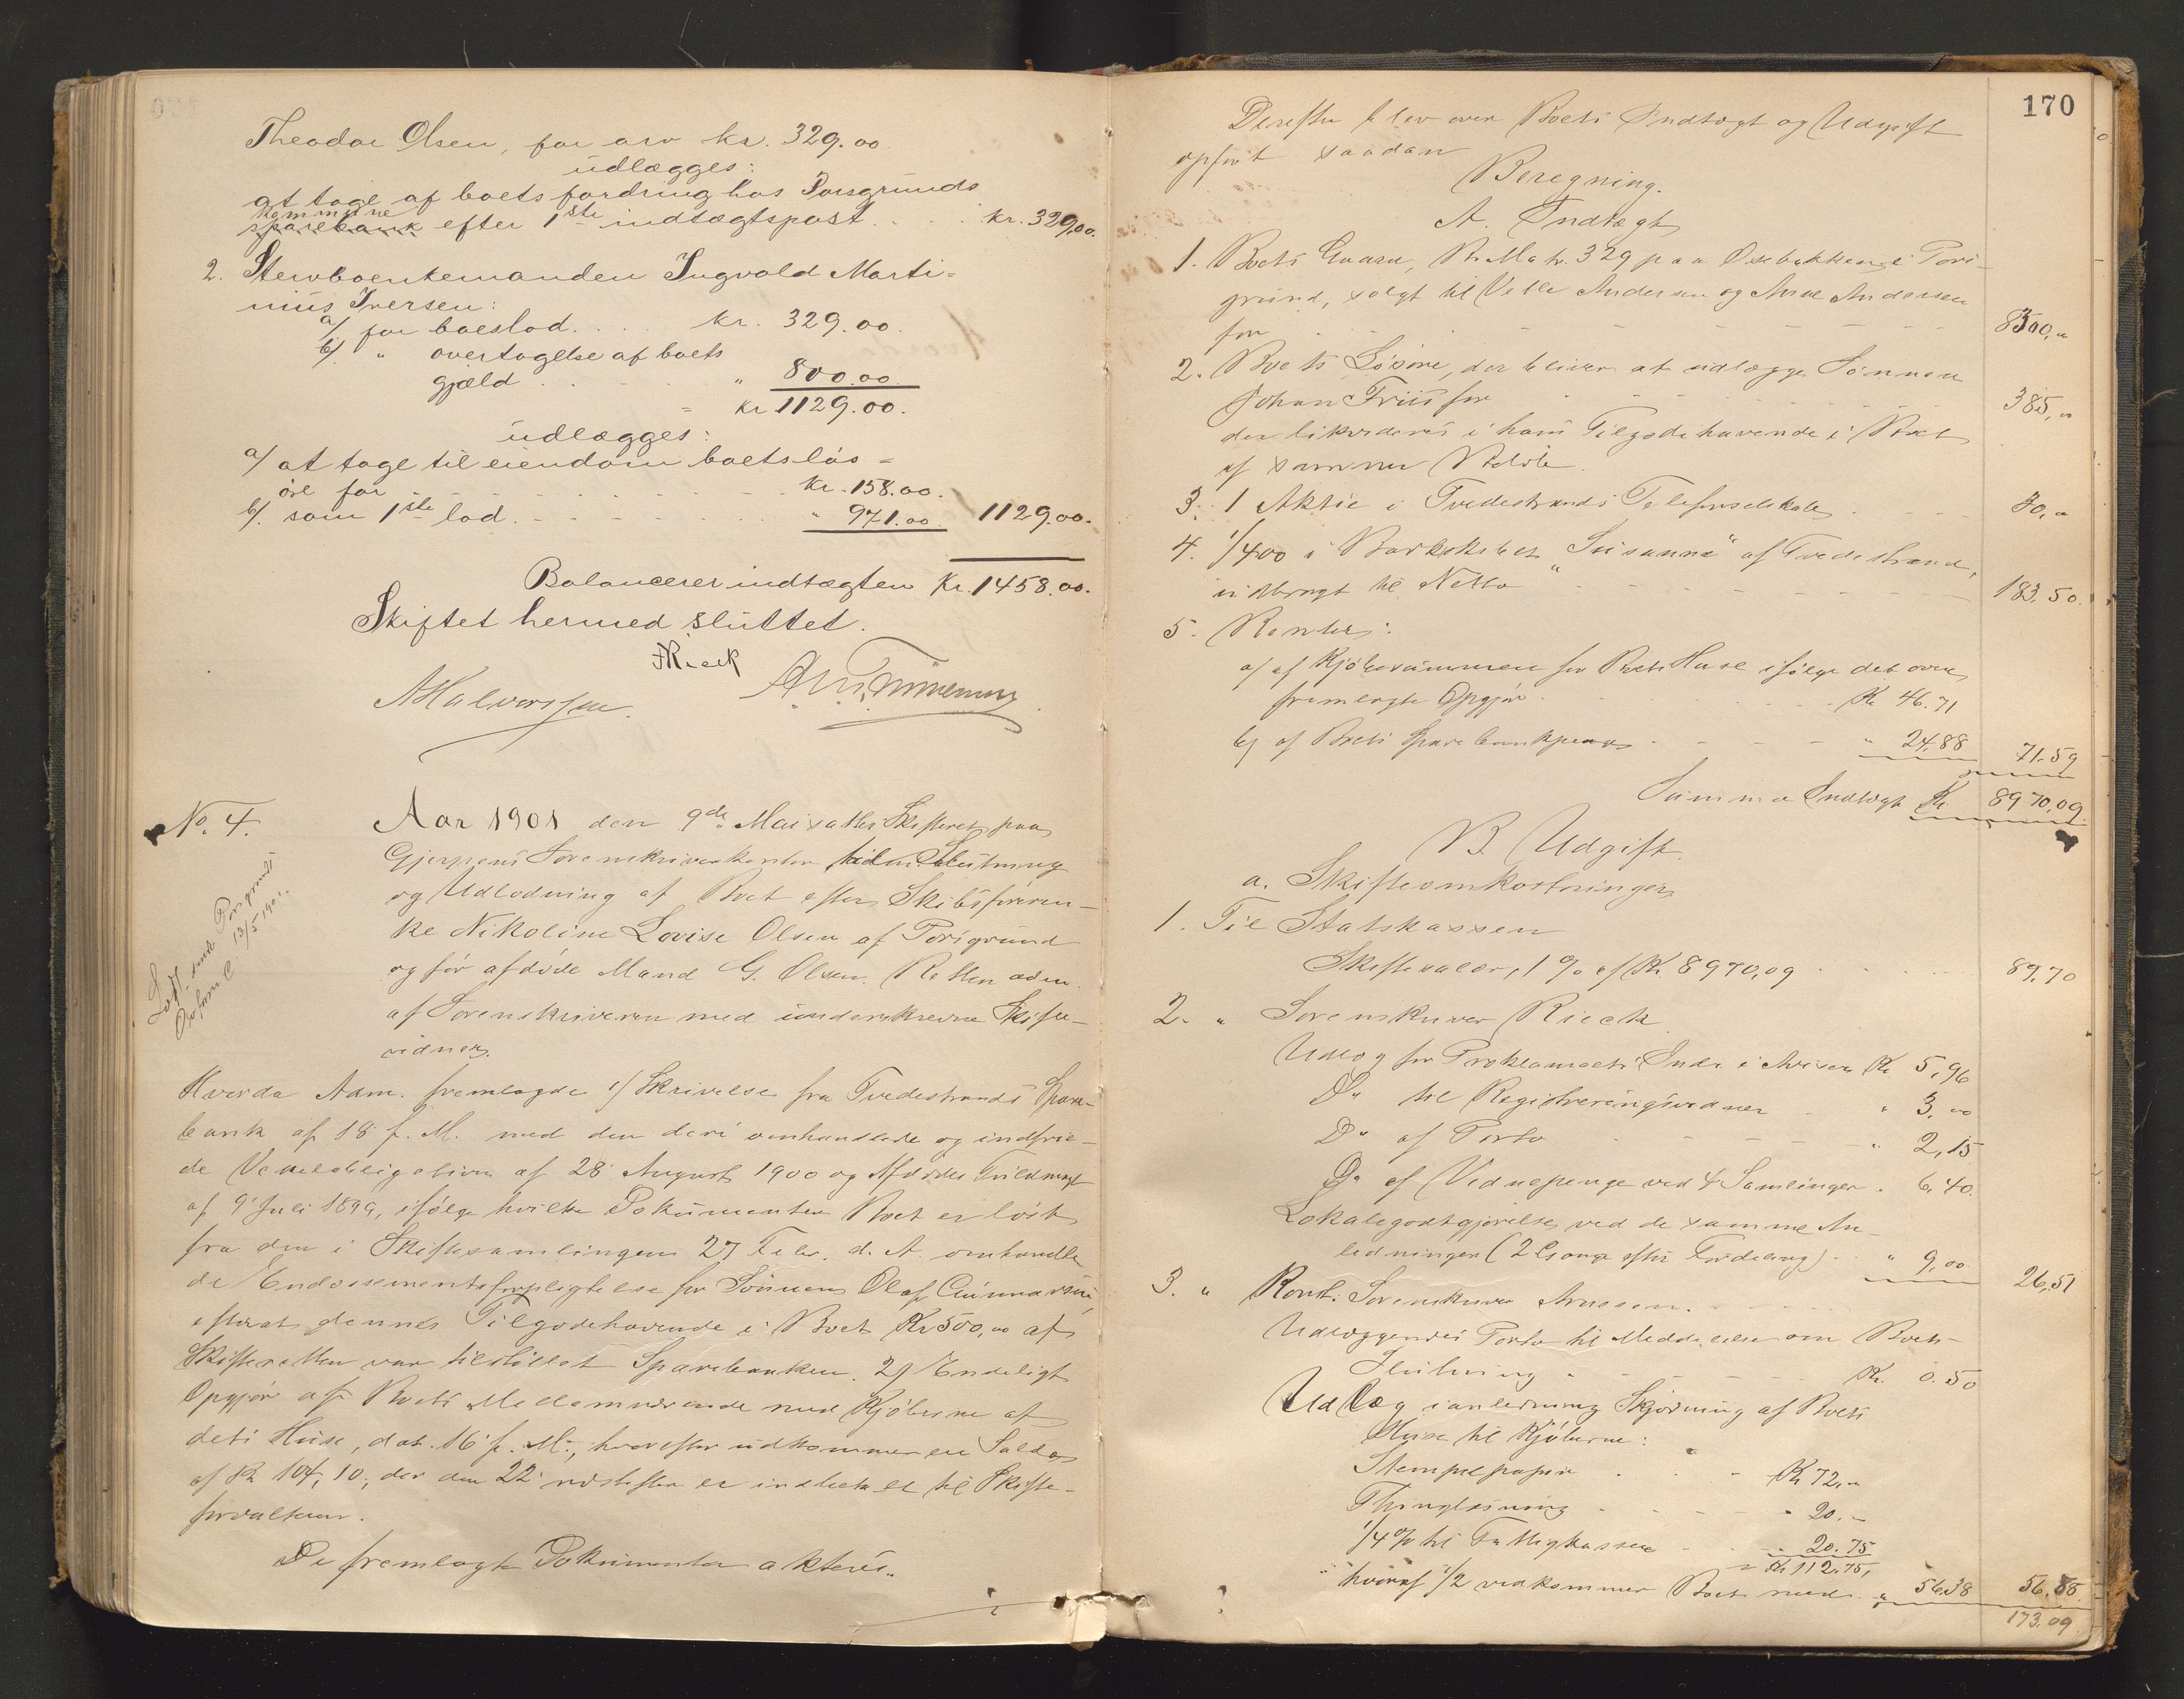 Theodor Olsen, for arv kr. 329.00
udlægges:
at tage af boets fordring hos Porsgrunds
kommune
sparebank efter 1ste indtægtspost . . . kr. 329,00.
2. Stervboenkemanden Ingvald Marti=
nius Iversen:
a/ for boeslod. . . . kr. 329.00.
b/. " overtagelse af boets
gjæld . . . . . " 800.00.
= kr 1129.00.
udlægges:
a/ at tage til eiendom boets løs=
øre for . . . . . . . kr. 158.00.
b/. som 1ste lod. . . . . . . " 971.00. 1129.00.
Balancerer indtægten Kr. 1458.00.
Skiftet hermed sluttet.
FRieck
AHalvorsen.
No. 4.
Aar 1901 den 9de Mai sattes Skifteret paa
Gjerpens Sorenskriverkontor til Slutning
og Udlodning af Boet efter Skibsføreren-
ke Nikoline Lovise Olsen af Porsgrund
og før afdøde Mand G. Olsen. Retten adm.
af Sorenskriveren med underskrevne Skifte-
vidner.
Porsgrunds
13/5 1901.
Hvorda Adm. fremlagde 1/ Skrivelse fra Tvedestrands Spare-
bank af 18 f. M. med den deri omhandlede og indfrie-
de Vexelobligation af 28 August 1900 og Afdødes
af 9 Juli 1899, ifølge hvilke Dokumenter Boet er løst
fra den i Skiftesamlingen 27 Febr. d. A. omhandle
de Endossementsforpligtelse for Sønnen Olaf Gunnarsen,
efterat dennes Tilgodehavende i Boet Kr 500,00 af
Skifteretten var tilstillet Sparebanken. 2/ Endeligt
Opgjør af Boets Mellemværende med Kjøberne af
dets Huse, dat. 16 f. M., hvorefter udkommer en Saldo
af Kr 104,10, der den 22 næstefter er indbetalt til Skifte-
forvalteren.
De fremlagte Dokumenter akteres.
170
Derefter blev over Boets Indtægt og Udgift
opført saadan
Beregning.
A. Indtægt
1. Boets Gaard, Br. Matr. 329 paa Osebakken i Pors-
grund, solgt til Vetle Andersen og Anne Andersen
for . . . . . . . 8300,00
2. Boets Løsøre, der bliver at udlægge Sønnen
Johan Friis for . . . . . . . 385,00
der likvideres i hans Tilgodehavende i Boet
af samme Beløb.
3. 1 Aktie i Tvedestrands Telefonselskab . . . . 30,00
4. 1/400 i Barkskibet "Susanna" af Tvedestrand,
indbragt til Netto . . . . . . . 183.50.
5. Renter:
a/ af Kjøbesummen for Boets Huse ifølge det oven
fremlagte Opgjør . . . . . . Kr 46.71
b/ af Boets Sparebankpenge . . . . . " 24.88 71.59
Summa Indtægt Kr 8970,09.
B. Udgift.
a. Skifteomkostninger.
1. Til Statskassen
Skiftesalær, 1 % af Kr. 8970,09 . . . . . 89.70
2. " Sorenskriver Rieck
Udlæg for Proklamaets Indr. i Avisen Kr 5,96
Do til Registreringsvidner . . " 3.00
Do af Porto . . . . . . " 2,15
Do af Vidnepenge ved 4 Samlinger . 6.40.
Lokalegodtgjørelse ved de samme An-
ledninger (2 Gange efter Fordeling) . . " 9,00 26,51
3. " Konst. Sorenskriver Arnesen . . . . . .
Udlæggendes Porto til Meddelelse om Boets
Slutning . . . . . . Kr. 0.50
Udlæg i anledning Skjødning af Boets
Huse til Kjøberne:
Stempelpapir . . . . Kr 72,00
Thinglæsning . . . . . " 20.-
1/4 % til Fattigkassen . . . " 20.75
= Kr 112.75,
hvoraf 1/2 vedkommer Boet med . " 56.38 56.88.
173.09